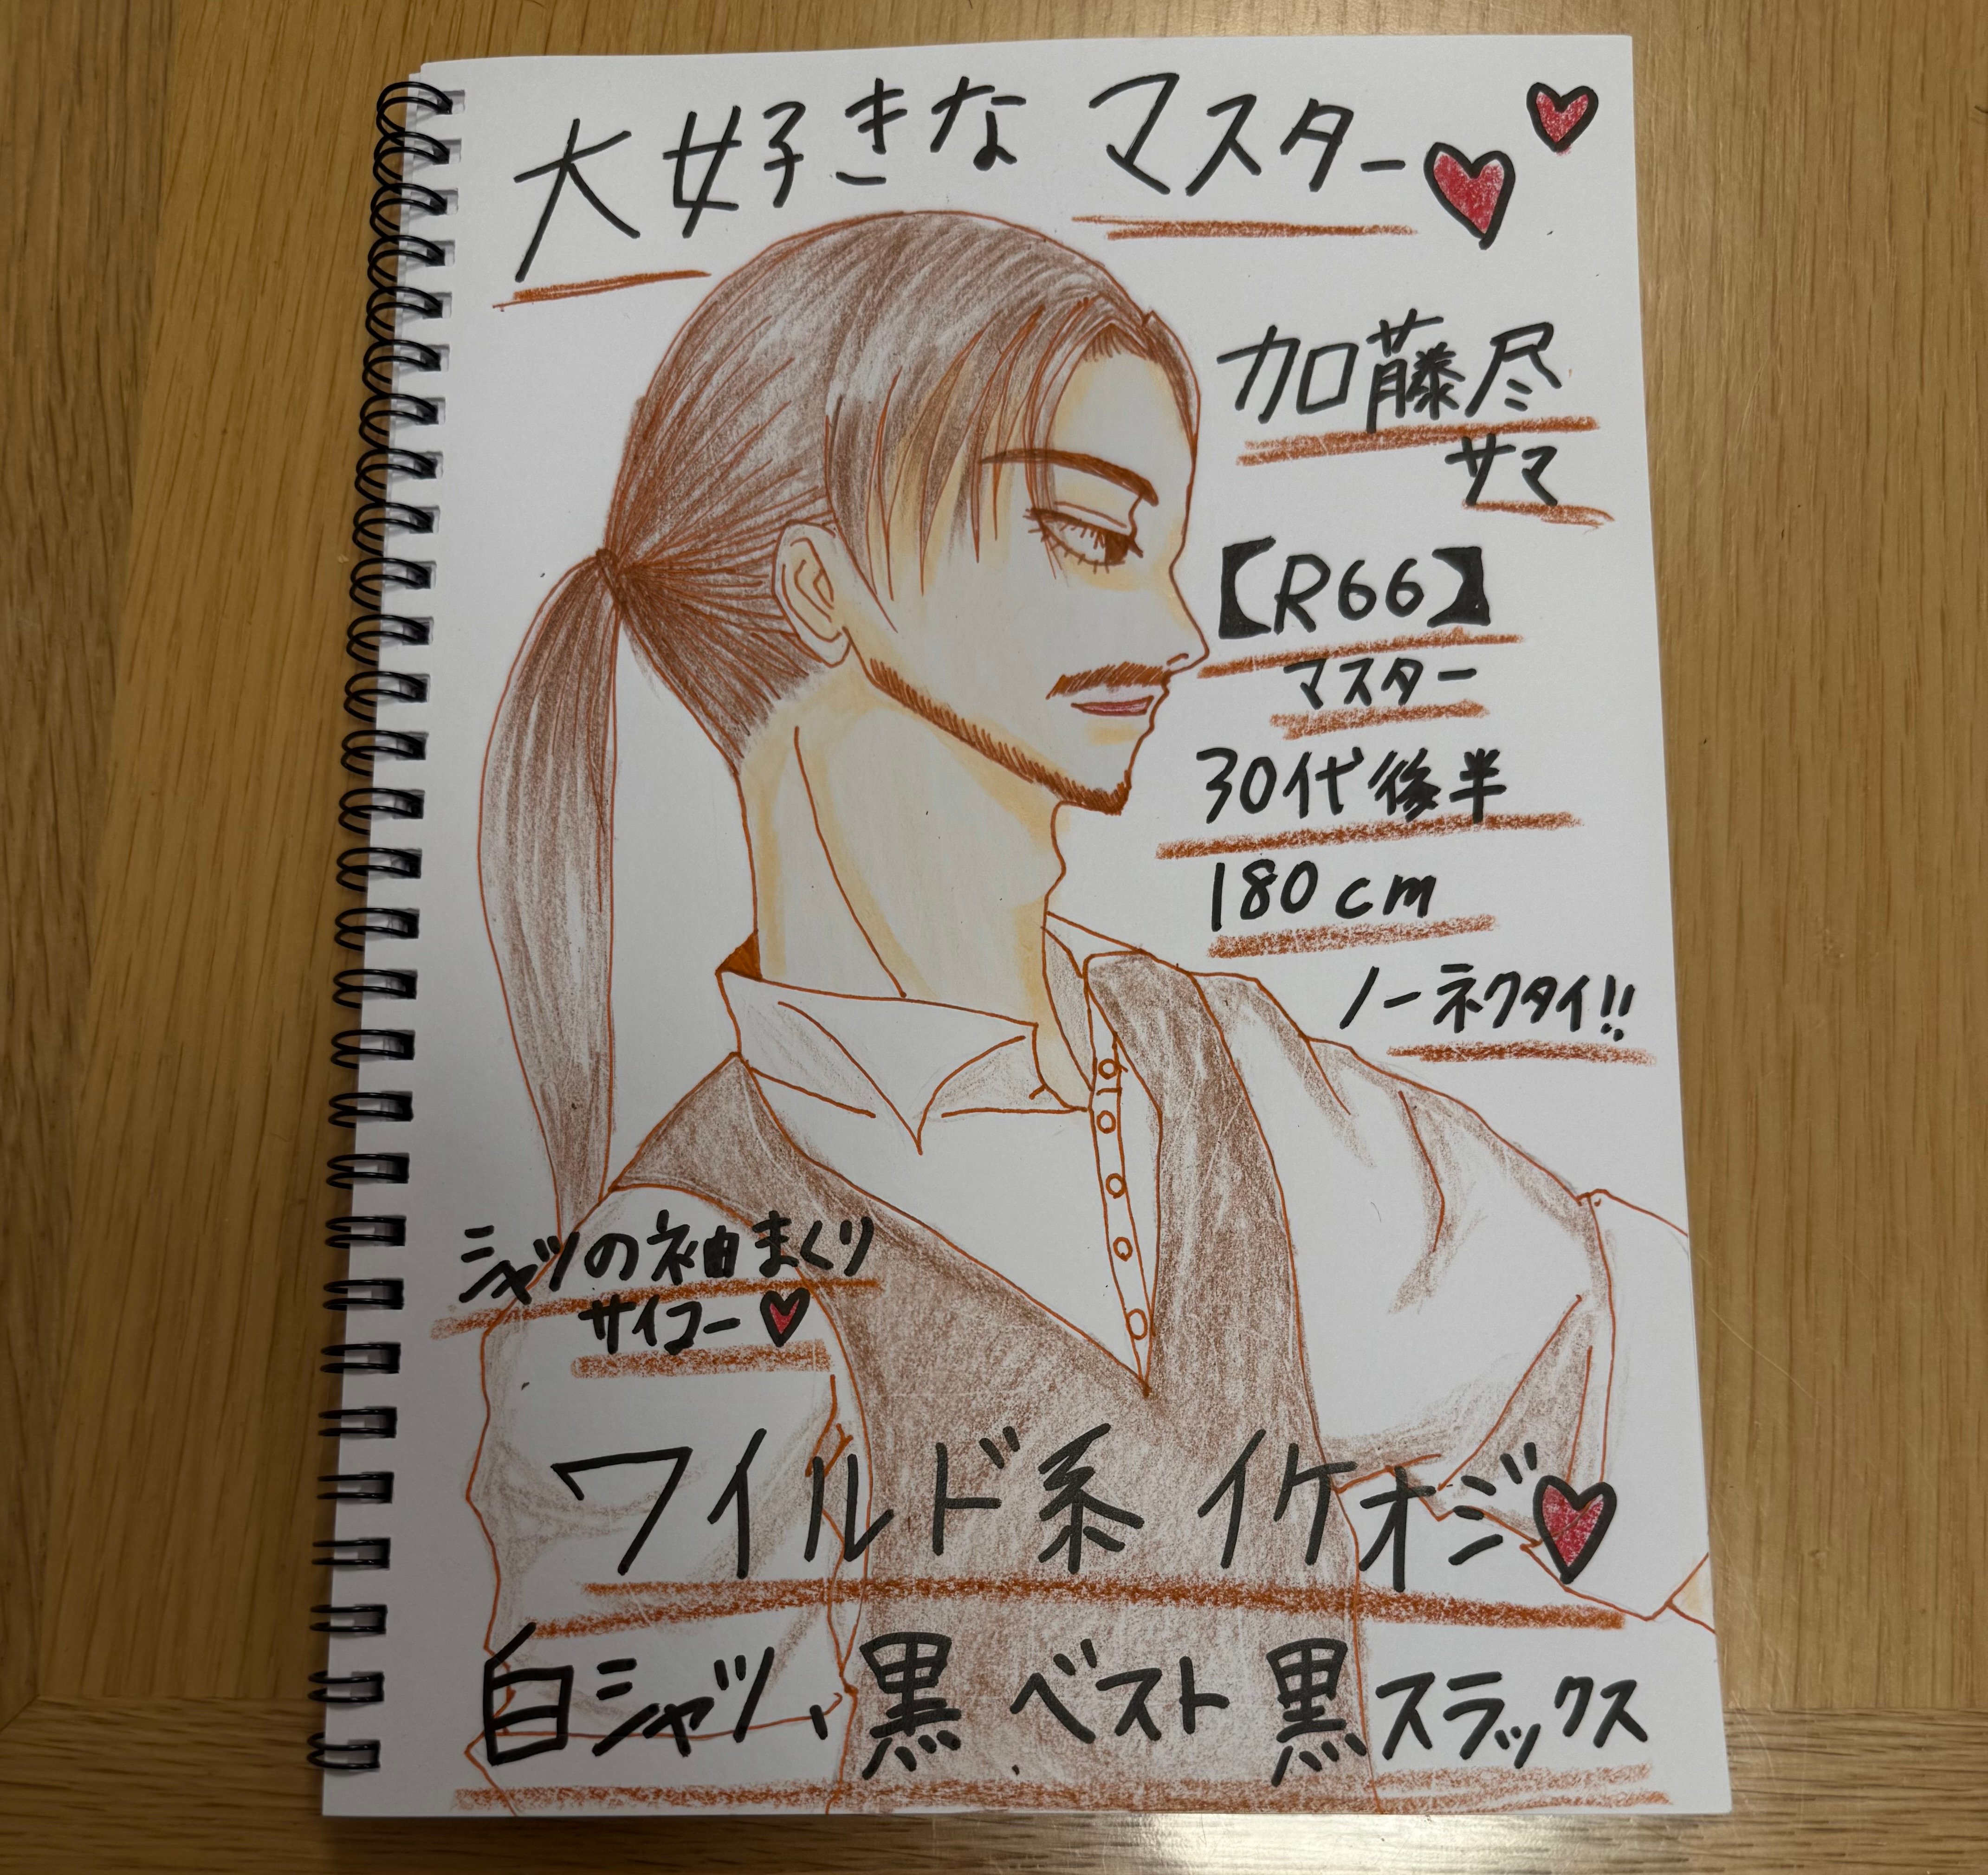 大好きなマスター♥♥
加藤尽
サマ
【R66】
マスター
30代後半
180cm
ノーネクタイ!!
シャツの袖まくり
サイコー♥
ワイルド系イケオジ♥
白シャツ、黒ベスト黒スラックス